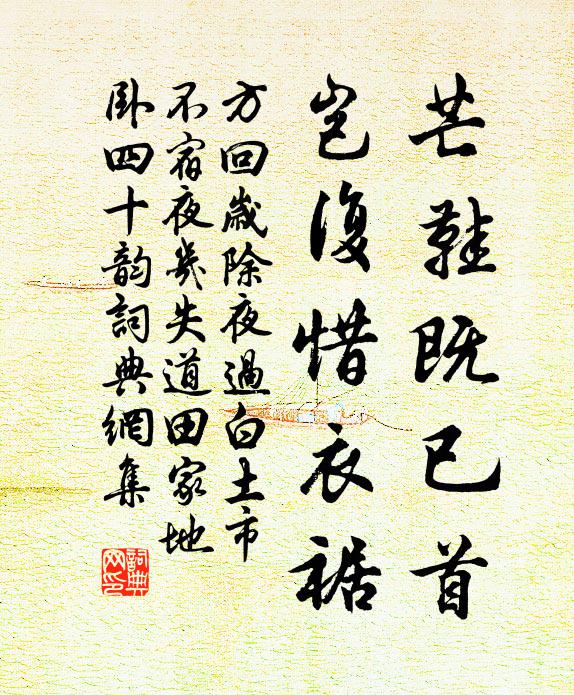 芒鞋既已首
岂復惜衣裾
方回歲除夜過白土市
不宿夜幾失道田家地
卧四十韵詞典網集
詞典网印